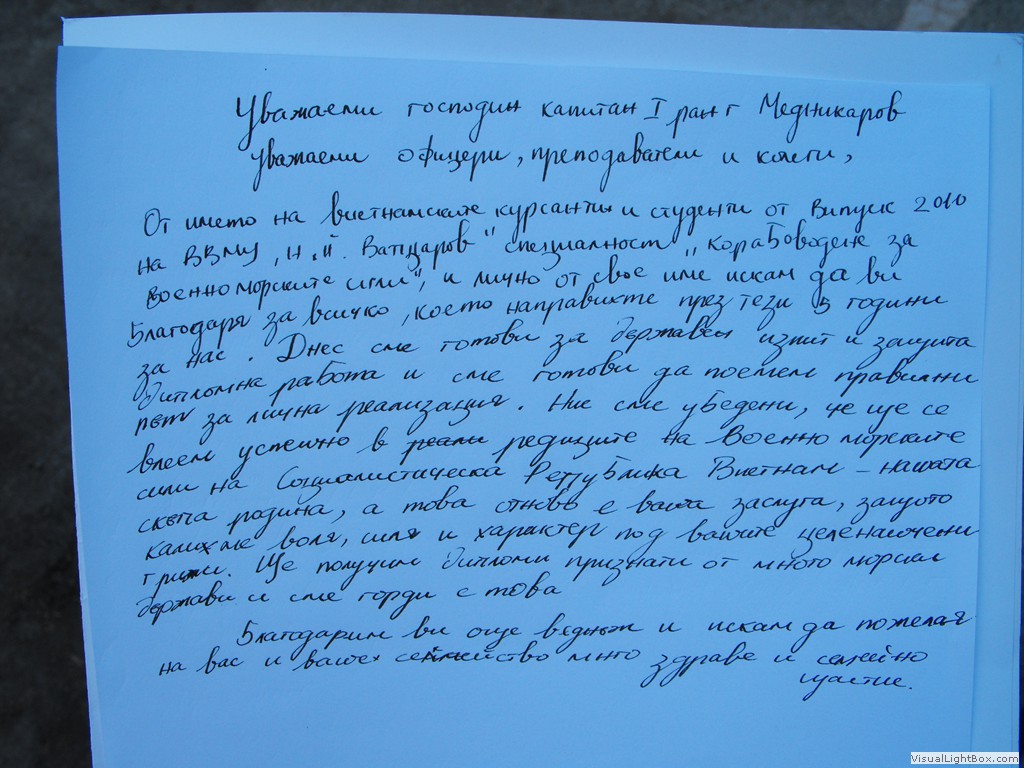 Уважаеми господин капитан I ранг Медникаров
Уважаеми офицери, преподаватели и колеги,
От името на виетнамските курсанти и студенти от Випуск 2010
на ВВМУ „Н. Й. Вапцаров" специалност „Корабоводене за
Военноморските сили", и лично от свое име искам да ви
Благодаря за всичко, което направихте през тези 5 години
за нас. Днес сме готови за държавен изпит и защита
дипломна работа и сме готови да поемем правилни
път за лична реализация. Ние сме убедени, че ще се
влеем успешно в реали редиците на Военно морските
сили на Социалистическа Република Виетнам – нашата
скъпа родина, а това отново е ваша заслуга, защото
калихме воля, сила и характер под вашите целенасочени
грижи. Ще получим дипломи признати от много морски
държави и сме горди с това
Благодарим ви още веднъж и искам да пожелая
на вас и вашех семейство много здраве и семейно
щастие.
VisualLightBox.com